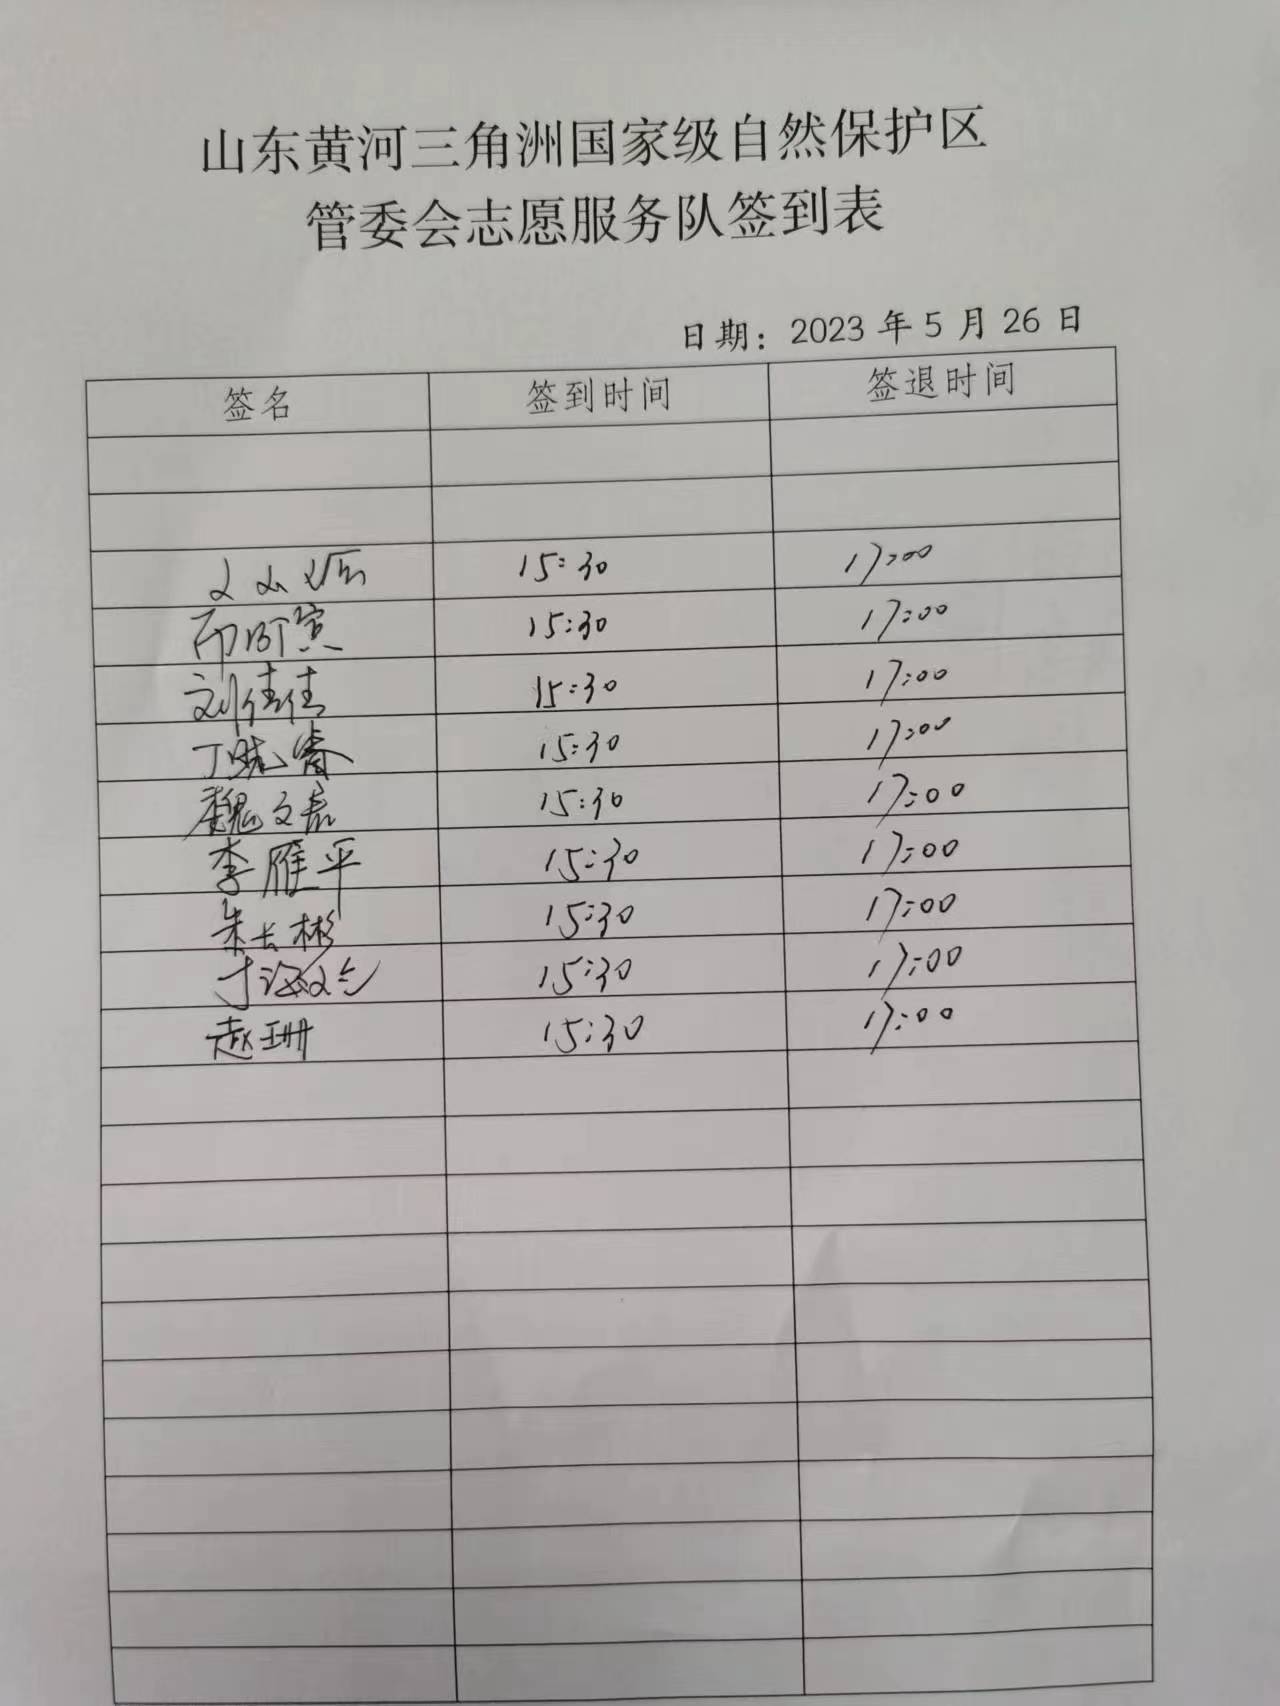 山东黄河三角洲国家级自然保护区
管委会志愿服务队签到表
日期：2023 年 5 月 26 日
签名 签到时间 签退时间
15:30 17:00
15:30 17:00
刘佳佳 15:30 17:00
15:30 17:00
魏文 15:30 17:00
李雁平 15:30 17:00
朱长彬 15:30 17:00
15:30 17:00
赵珊 15:30 17:00